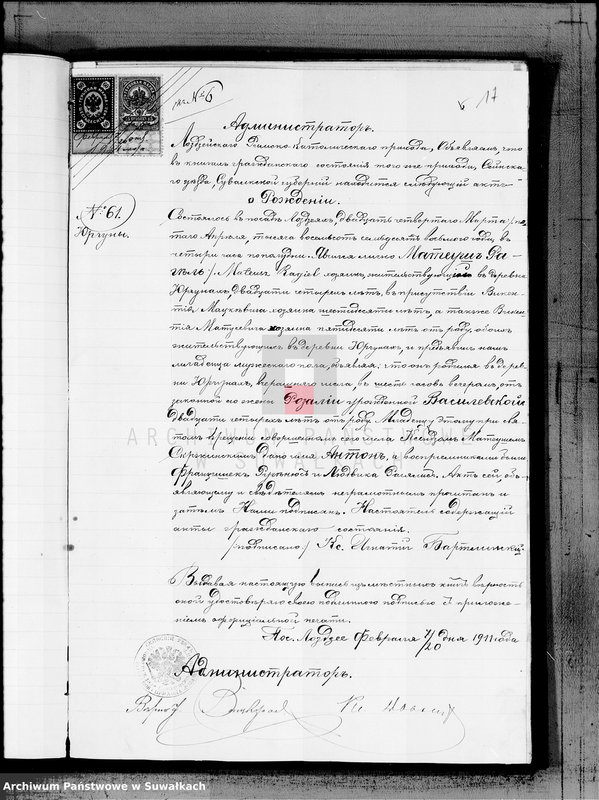 № 6
17
Администраторъ.
Лоздзейскаго Римско-Католическаго прихода, Объявляетъ, что
въ книгахъ гражданскаго состоянія того же прихода, Сейнска-
го уѣзда, Сувалкской губерніи находится слѣдующій актъ
о Рожденіи.
№ 61.
Юргуны.
Состоялось въ посадѣ Лоздзеяхъ, двадцать четвертаго Марта / пя-
таго Апрѣля, тысяча восемьсотъ семьдесятъ восьмого года, въ
четыре часа пополудни. Явился лично Матеушъ Ра-
гель / Mateusz Ragiel хозяинъ, жительствующій въ деревнѣ
двадцати четырехъ лѣтъ, въ присутствіи Викен-
тія хозяина шестидесяти лѣтъ, а также Викен-
тія Матулевича хозяина пятидесяти лѣтъ отъ роду, обоихъ
жительствующихъ въ деревнѣ и предъявилъ намъ
младенца мужескаго пола, объявляя, что онъ родился въ дерев-
нѣ вчерашняго числа, въ шесть часовъ вечеромъ, отъ
законной его жены Розаліи урожденной Василевской
двадцати четырехъ лѣтъ отъ роду. Младенцу этому при свя-
томъ крещеніи совершенномъ сего числа Ксендзомъ Матеушемъ
дано имя Антонъ, а воспріемниками были
Францишекъ и Людвика Акт сей, объ-
являющему и свидѣтелямъ неграмотнымъ прочитанъ и
затѣмъ Нами подписанъ. Настоятель содержащій
акты гражданскаго состоянія.
/подписано/ Кс. Игнатій Бартлинскій
Выдавая настоящую выпись изъ мѣстныхъ книгъ вѣрность
оной удостовѣряю своею подлинною подписью и приложе-
ніемъ оффиціальной печати.
Пос. Лоздзее Февраля 7/20 дня 1911 года
Администраторъ.
Кс
ARCHIWUM PAŃSTWOWE
W SUWAŁKACH
Archiwum Państwowe w Suwałkach